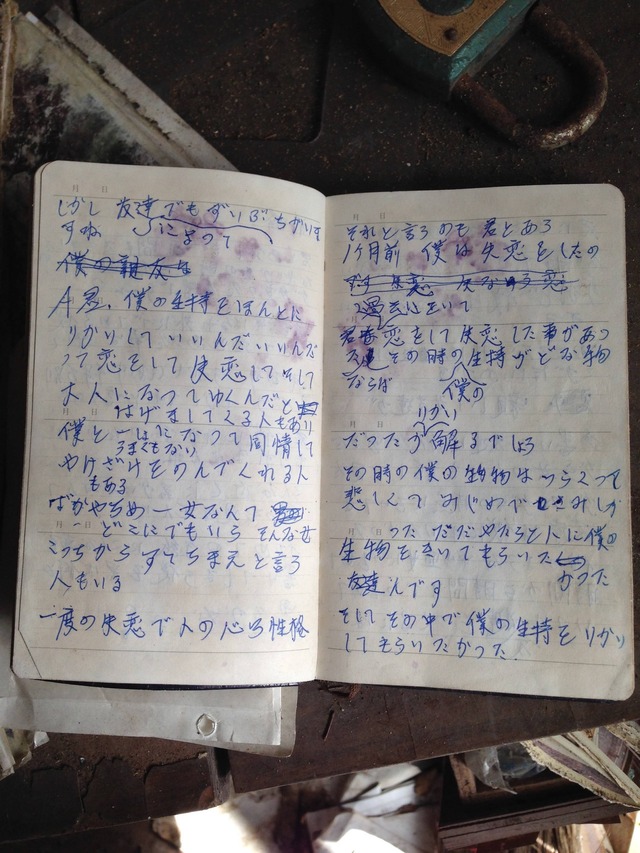 しかし 友達でもずいぶちがいま
すね によって
僕の親友は
A君、僕の生持をほんとに
りかりしていいんだいいんだ
って恋をして失恋してそして
大人になってゆくんだと
はげましてくる人もあり
僕と一しょになって同情して
うまくもない
やけざけをのんでくれる人
もある
ばかやろめ一女なんて
どこにでもいら そんな女
こっちからすてちまえと言う
人もいる
一度の失恋で人の心う性格
それと言うのも 君とあろ
1ヶ月前 僕は失恋をしたの
失恋
過去において
恋をして失恋した事があつ
その時の生持がどな物
ならば
僕の
りかい
だったが解るでしょう
その時の僕の生物はつらくって
悲しくてみじめで さみしか
った ただやたらと人に僕の
生物をきいてもらいた
かった
友達んです
そしてその中で僕の生持をりかい
してもらいたかった.